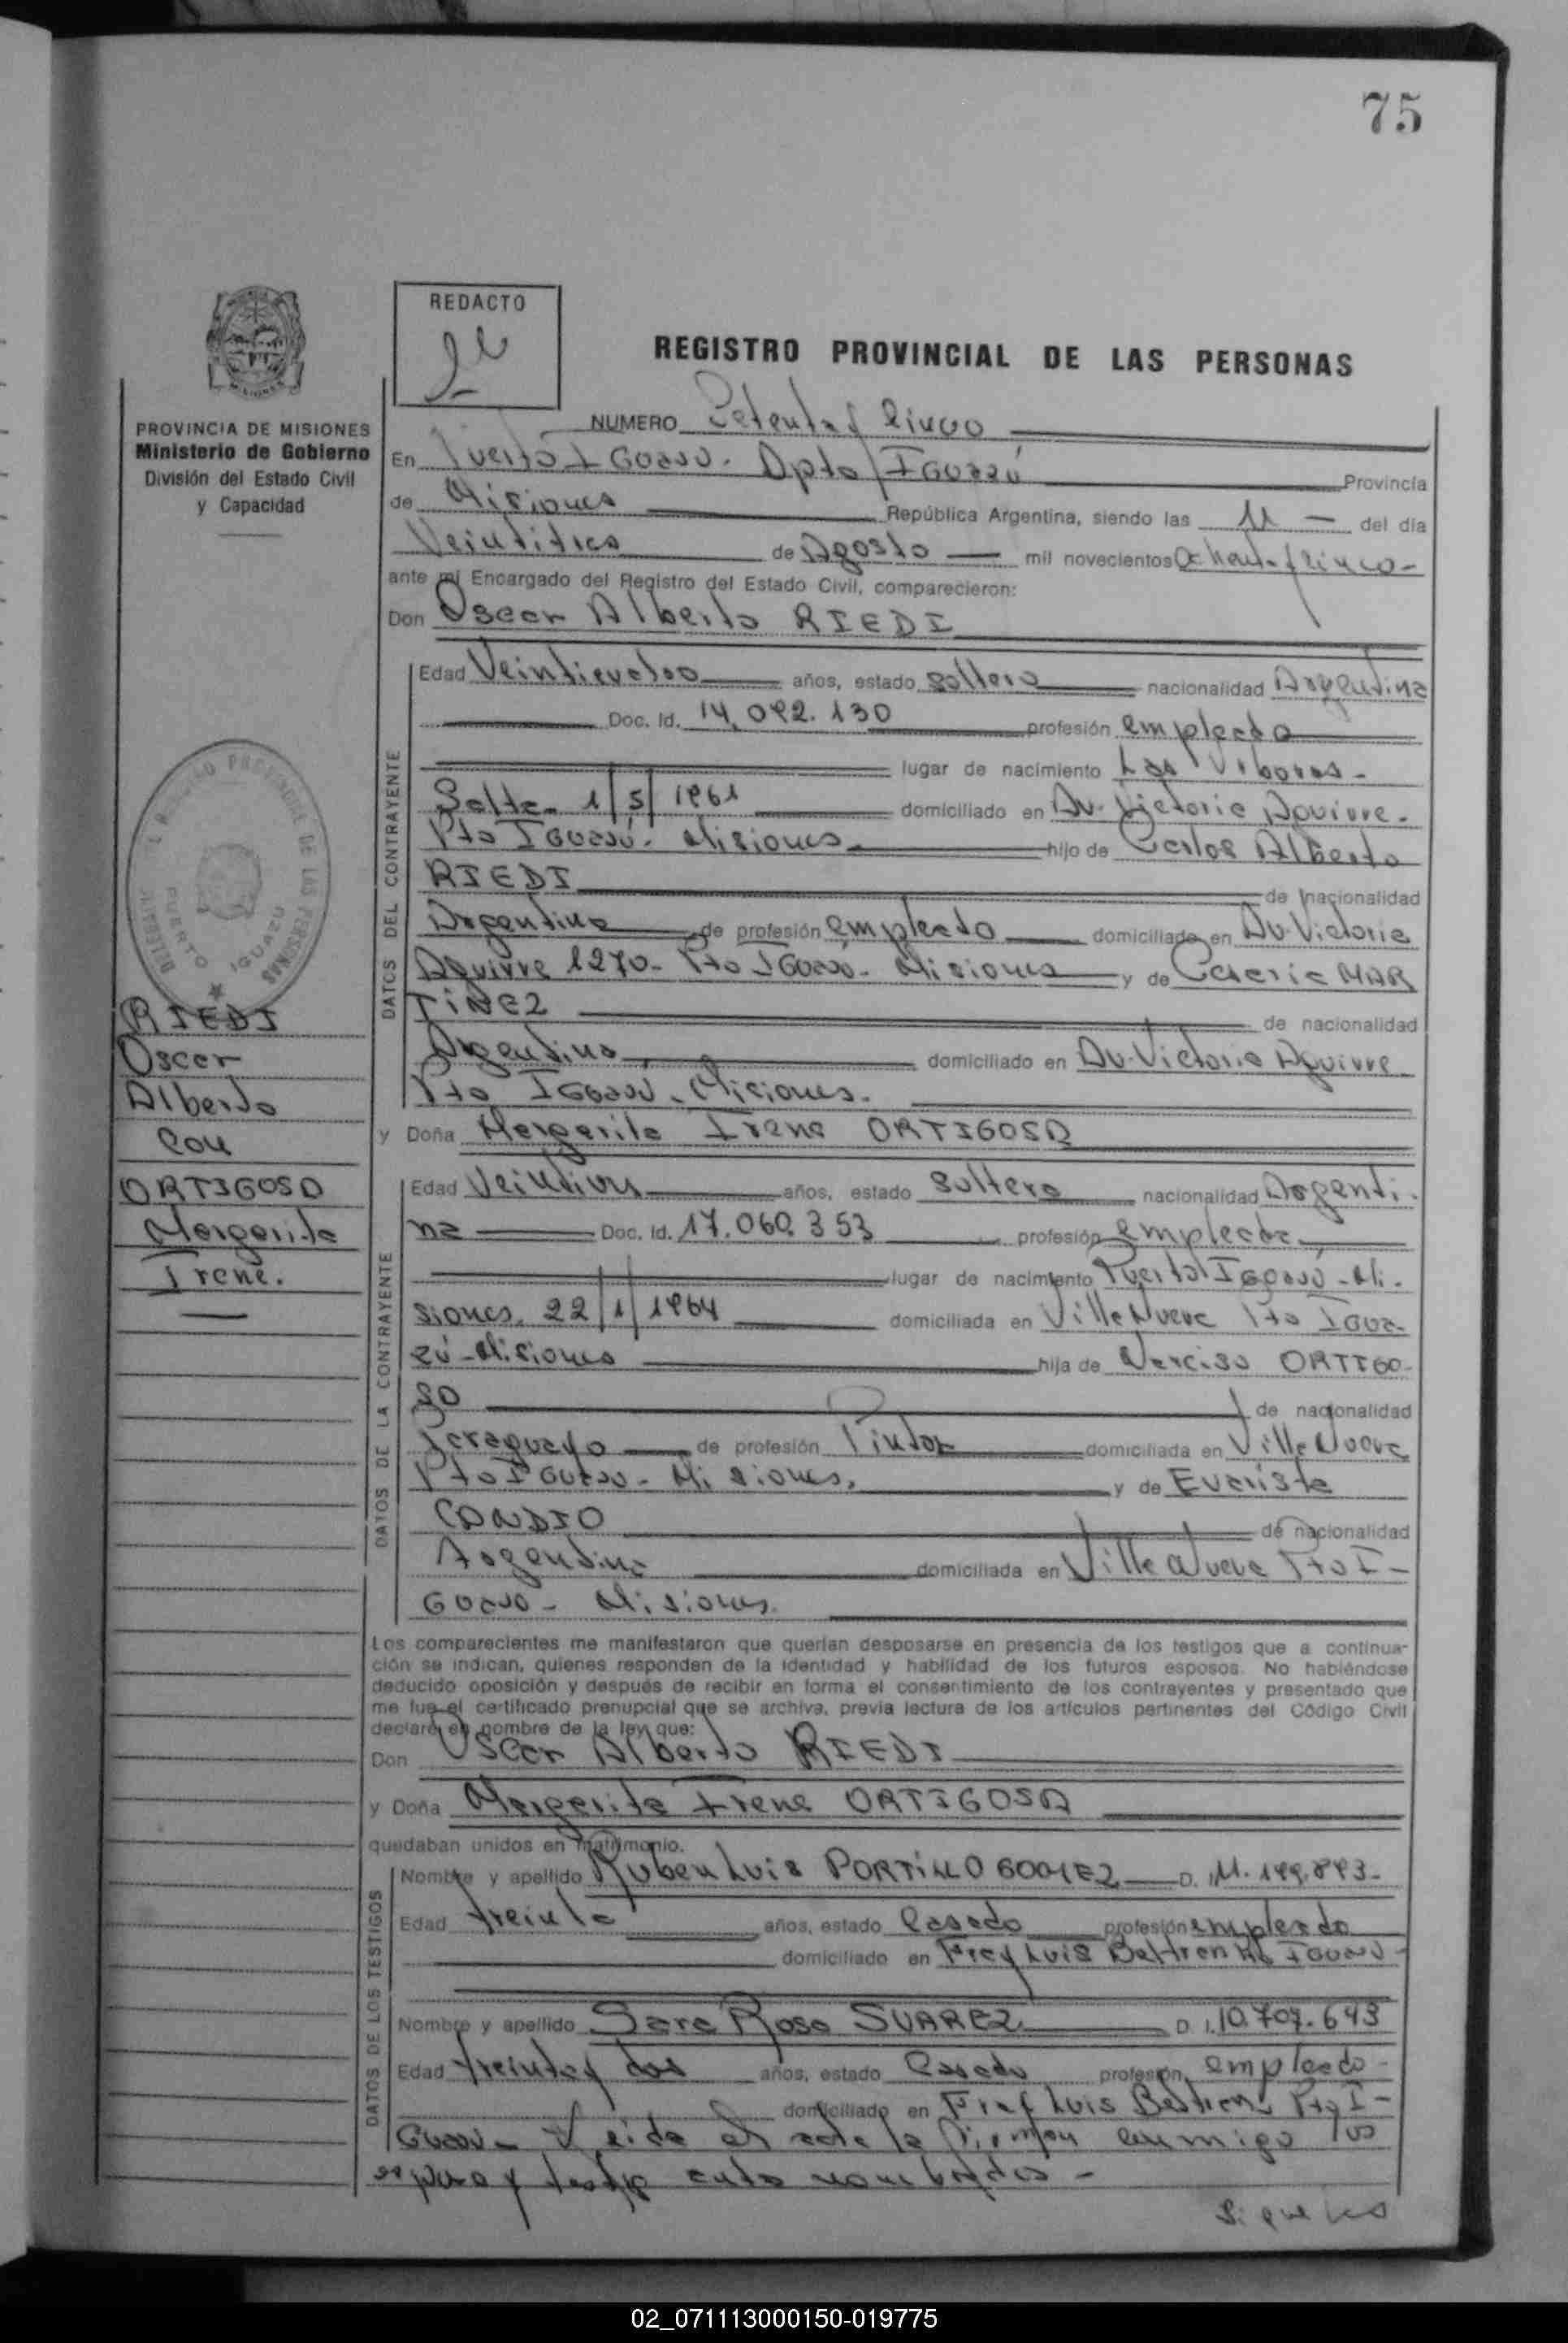 75
REDACTO
REGISTRO PROVINCIAL DE LAS PERSONAS
PROVINCIA DE MISIONES
Ministerio de Gobierno
División del Estado Civil
y Capacidad
NUMERO Setenta y Cinco
En Puerto IGuazú. Dpto IGuazú Provincia
de Misiones República Argentina, siendo las 11 - del día
Veintitres de Agosto mil novecientos Ochenta y cinco-
ante mi Encargado del Registro del Estado Civil, comparecieron:
Don Oscar Alberto RIEDI
DATOS DEL CONTRAYENTE
Edad Veinticuatro años, estado soltero nacionalidad Argentina
Doc. Id. 14.092.130 profesión empleado
lugar de nacimiento Las Viboras-
Salta- 1/5/1961 domiciliado en Av. Victoria Aguirre.
Pto IGuazú. Misiones hijo de Carlos Alberto
RIEDI de nacionalidad
Argentina de profesión empleado domiciliado en Av. Victoria
Aguirre 1270- Pto IGuazú- Misiones y de MAR
TINEZ de nacionalidad
Argentina domiciliado en Av. Victoria Aguirre
Pto IGuazú. Misiones.
RIEDI
Oscar
Alberto
con
ORTIGOSA
Margarita
Irene.
y Doña Margarita Irene ORTIGOSA
DATOS DE LA CONTRAYENTE
Edad Veintiun años, estado Soltera nacionalidad Argenti.
na Doc. Id. 17.060.353 profesión empleada
lugar de nacimiento Puerto IGuazú-Mi.
siones. 22/1/1964 domiciliada en Villa Nueva Pto IGua-
zú-Misiones hija de Narciso ORTIGO-
SO de nacionalidad
Paraguayo de profesión Pintor domiciliada en Villa Nueva
Pto IGuazú- Misiones. y de Evarista
CANDIO de nacionalidad
Argentina domiciliada en Villa Nueva Pto I-
Guazú- Misiones.
Los comparecientes me manifestaron que querían desposarse en presencia de los testigos que a continua-
ción se indican, quienes responden de la identidad y habilidad de los futuros esposos. No habiéndose
deducido oposición y después de recibir en forma el consentimiento de los contrayentes y presentado que
me fue el certificado prenupcial que se archiva, previa lectura de los artículos pertinentes del Código Civil
declaré en nombre de la ley que:
Don Oscar Alberto RIEDI
y Doña Margarita Irene ORTIGOSA
quedaban unidos en matrimonio.
DATOS DE LOS TESTIGOS
Nombre y apellido Ruben Luis PORTILLO GOMEZ D. I.
Edad treinta años, estado Casado profesión empleado
domiciliado en Fray Luis Beltran Pto IGuazú-
Nombre y apellido Sara Rosa SUAREZ D. I. 10.707.643
Edad treinta y dos años, estado Casada profesión empleado-
domiciliado en Fray Luis Beltran Pto I-
Guazú- Leida el acta la firman conmigo los
esposos y testigos nombrados-
02_071113000150-019775